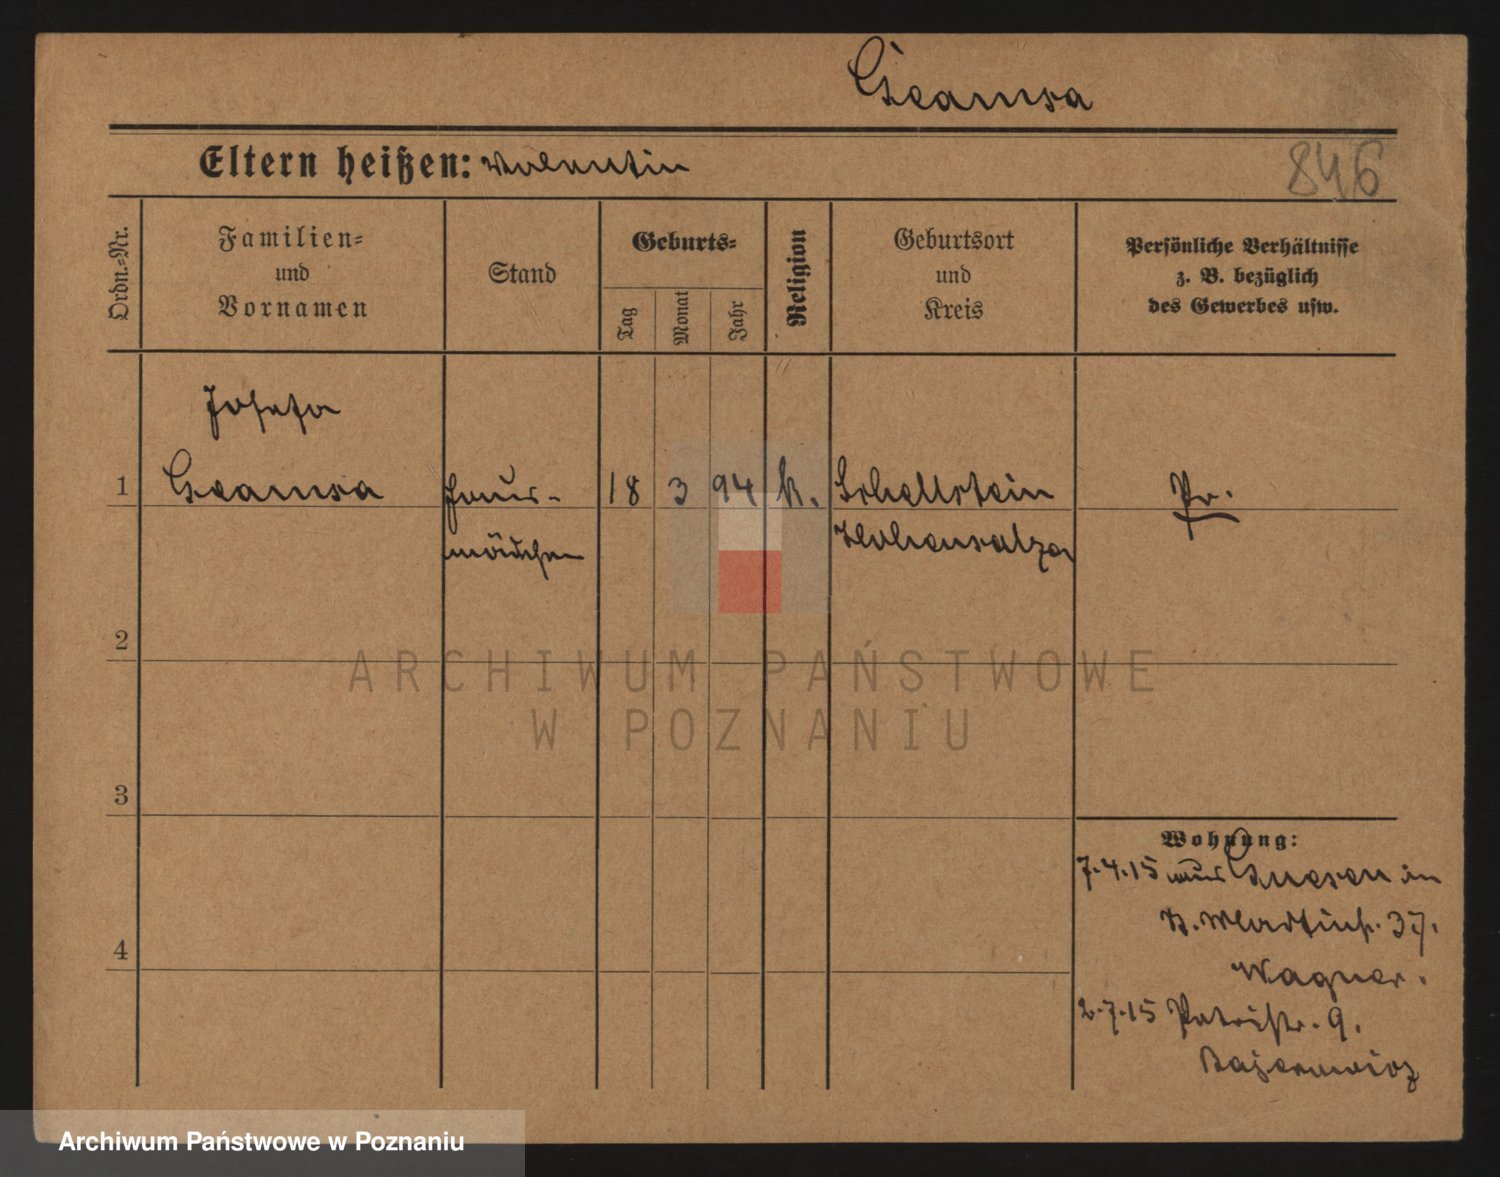 Eltern heißen: Valentin
846
Ordn.-Nr.
Familien-
und
Vornamen
Stand
Geburts-
Tag
Monat
Jahr
Religion
Geburtsort
und
Kreis
Persönliche Verhältnisse
z. B. bezüglich
des Gewerbes usw.
Josefa
1 Haus- 18 3 94 k. Schellstein Pr.
mädchen Hohensalza
2
3
4
Wohnung:
7.4.15 aus Gnesen in
37.
Wagner.
2.7.15 Patristr. 9.
ARCHIWUM PAŃSTWOWE
W POZNANIU
Archiwum Państwowe w Poznaniu